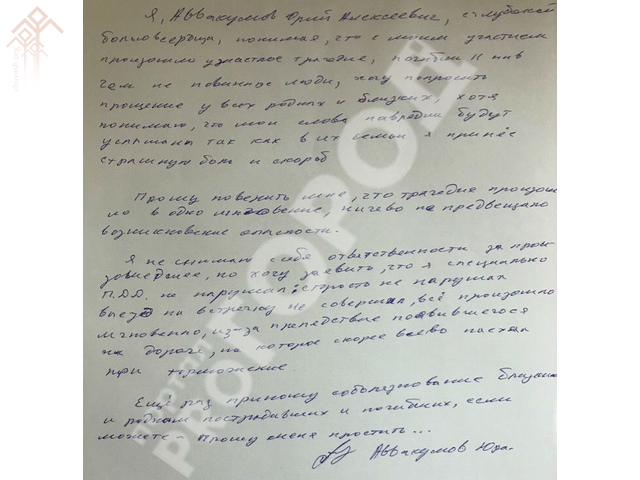 Я, Аввакумов Юрий Алексеевич, с глубокой
болью сердца, понимая, что с моим участием
произошло ужастное трагедие, погибли 11 ни в
чем не повинное люди, хочу попросить
прощение у всех родных и близких, хотя
понимаю, что мои слова навредли будут
услышаны так как в их семьи я принёс
страшную боль и скорбь
Прошу поверить мне, что трагедие произош
ло в одно мгновение, ничево не предвещало
возникновение опасности.
Я не снимаю себя ответственности за прои
зошедшее, но хочу заевить, что я специально
П.Д.Д. не нарушал, стросто не нарушал
выезд на встречку не совершал, всё произошло
мгновенно, из-за препедствие появившегося
на дороге, на которое скорее всево наехал
при торможение
Ещё раз приношу соболезнование близким
и родным пострадивших и погибших, если
можете - Прошу меня простить...
Аввакумов Юра.
PROГОРОД
PROГОРОД